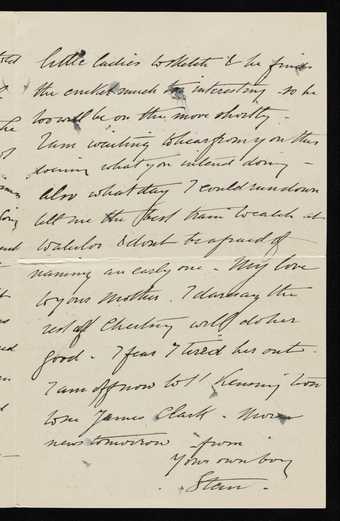 little ladies to sketch & he finds
the cricket much too interesting so he
too will be on the move shortly.
I am waiting to hear from you this
evening what you intend doing -
also what day I could run down
tell me the best train to catch at
Waterloo & dont be afraid of
naming an early one - My love
to your Mother. I daresay the
rest at Chertsey will do her
good. I fear I tired her out.
I am off now to St Kensington
to see James Clark. More
news tomorrow from
Your own boy